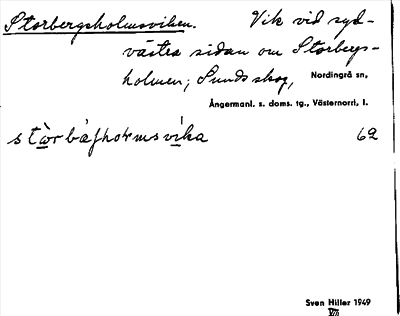 Storbergsholmsviken. Vik vid syd-
västra sidan om Storbergs-
holmen; Sundskog, Nordingrå sn,
Ångermanl. s. doms. tg., Västernorrl. l.
62
Sven Hiller 1949
VIII